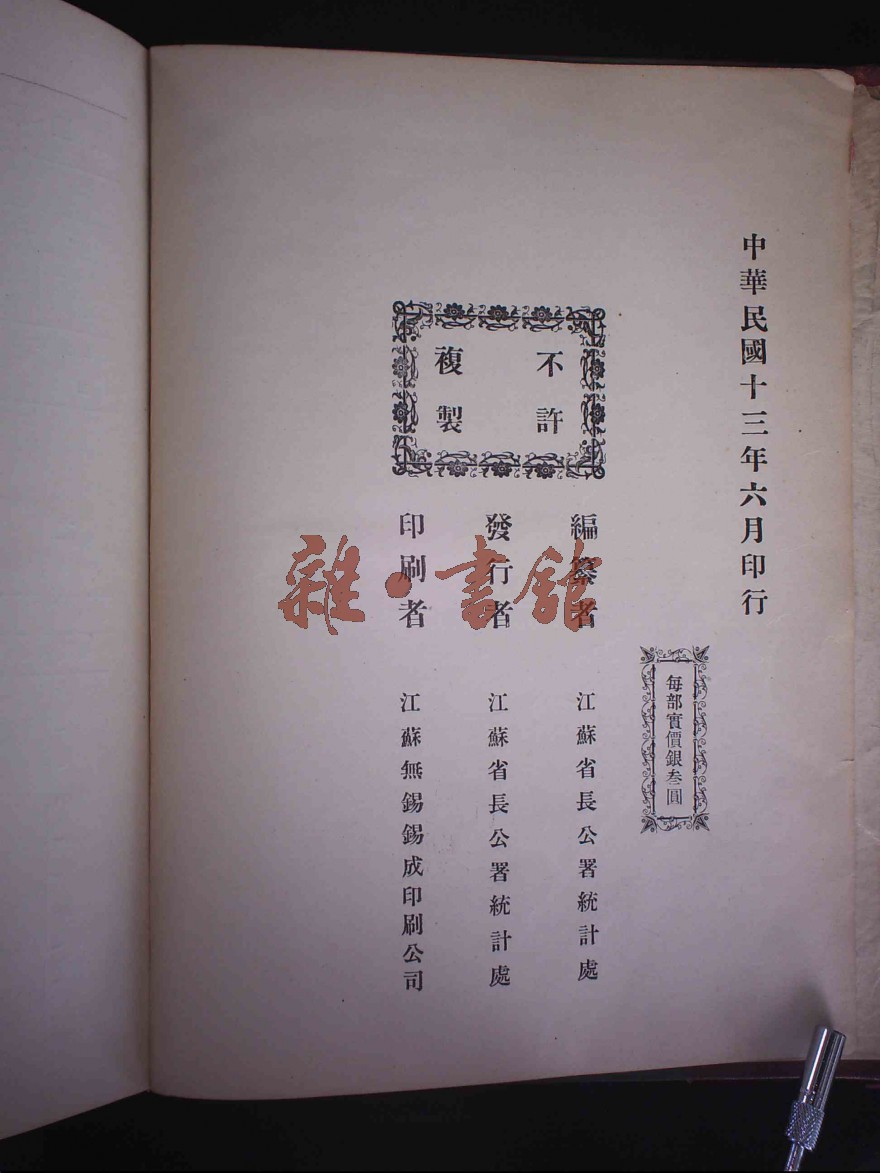 中華民國十三年六月印行
每部實價銀叁圓
不許
複製
編纂者 江蘇省長公署統計處
發行者 江蘇省長公署統計處
印刷者 江蘇無錫錫成印刷公司
雜·書館